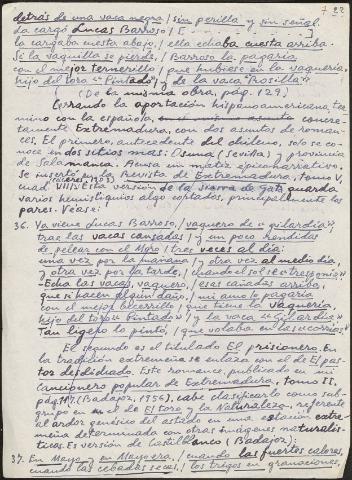 7 22
detrás de una vaca negra / sin perilla y sin señal.
La cargó Lucas Barroso / [- - - - - - - - ]
la cargaba cuesta abajo, / ella echaba cuesta arriba.
Si la vaquilla se pierde, / Barroso la pagaría
con el mejor ternerillo / que hubiese en la vaquería,
hijo del toro "Pintado" y de la vaca "Rosilla".
(De la misma obra, pág. 129)
Cerrando la aportación hispanoamericana, ter
mino con la española, concre-
tamente Extremadura, con dos asuntos de roman-
ces. El primero, antecedente del chileno, solo se co-
noce en dos sitios más: Osuna (Sevilla) y provincia
de Salamanca. Acusa un matiz épico narrativo.
Se insertó en la Revista de Extremadura, tomo V
(Cáceres, 1903)
cuad. VIII. Esta versión de la Sierra de Gata guarda
varios hemistiquios algo cortados, principalmente los
pares. Véase:
36. Ya viene Lucas Barroso, / vaquero de "gilardía",
tras las vacas cansadas / y un poco rendidas
de pelear con el Moro / tres veces al día:
una vez por la mañana / y otra vez al medio día,
y otra vez por la tarde, / cuando el sol se
-Echa las vacas, vaquero, / esas cañadas arriba,
que si hacen algún daño, / mi amo lo pagaría
con el mejor becerrito / que tiene la vaquería,
hijo del toro "Pintado" / y la vaca "Gilardía".
Tan ligero lo pintó, / que volaba en las
El segundo es el titulado El prisionero. En
la tradición extremeña se enlaza con el de El pas-
tor desdichado. Este romance, publicado en mi
Cancionero popular de Extremadura, tomo II,
pág. (Badajoz, 1956), cabe clasificarlo como sub-
grupo en el de El toro y la Naturaleza, referente
al ardor genésico del astado en una estación extre-
meña determinado con otras imágenes naturalís-
ticas. Es versión de Castilblanco (Badajoz):
37. En Mayo y en Mayo era, / cuando las fuertes calores,
cuando las cebadas secas, / los trigos en granaciones,